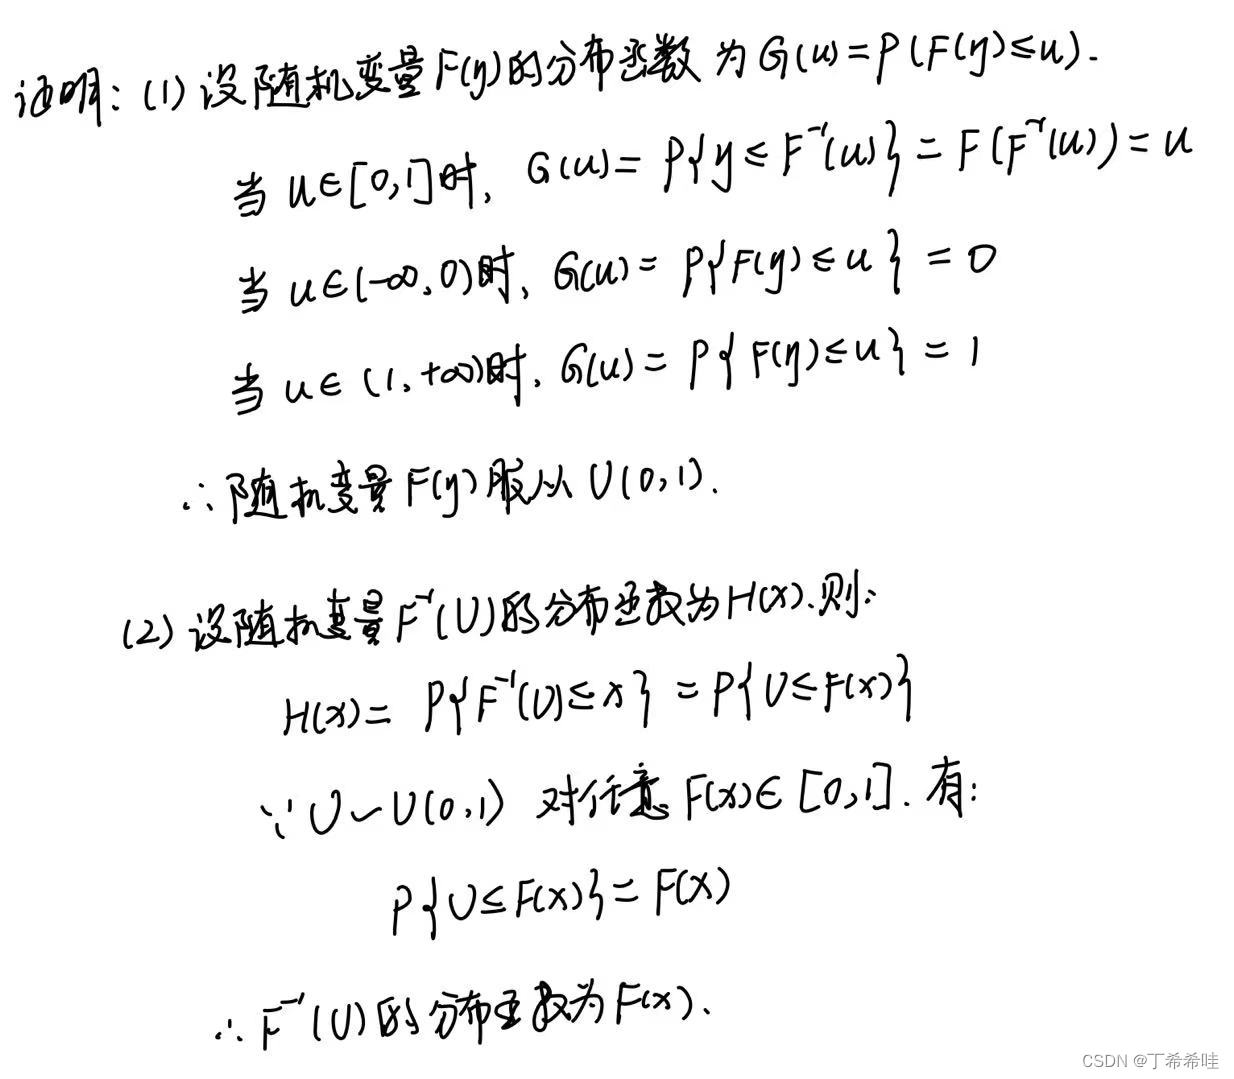 证明：(1) 设随机变量F(y)的分布函数为G(u)=P(F(y)≤u).
当 u∈[0,1]时, G(u)= P{y≤F⁻¹(u)}=F(F⁻¹(u))=u
当 u∈(-∞,0)时, G(u)= P{F(y)≤u}=0
当 u∈(1,+∞)时, G(u)= P{F(y)≤u}=1
∴随机变量F(y)服从U(0,1).
(2) 设随机变量F⁻¹(U)的分布函数为H(x).则:
H(x)= P{F⁻¹(U)≤x}=P{U≤F(x)}
∵U~U(0,1) 对任意F(x)∈[0,1].有:
P{U≤F(x)}=F(x)
∴F⁻¹(U)的分布函数为F(x).
CSDN @丁希希哇